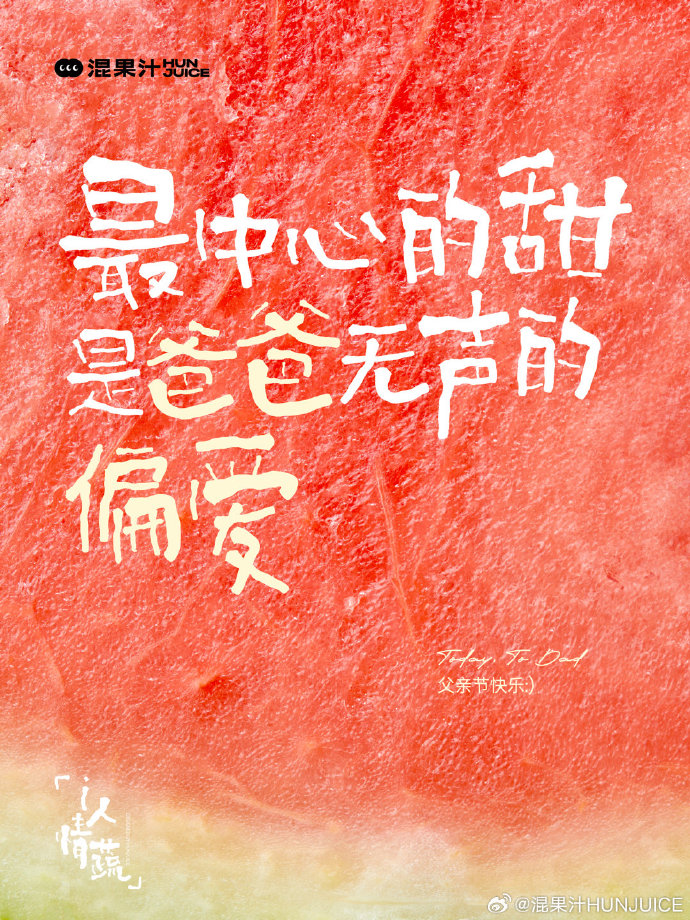 混果汁 HUN JUICE
最中心的甜
是爸爸无声的
偏爱
Today, To Dad
父亲节快乐:)
「i人
情蔬」
@混果汁HUNJUICE